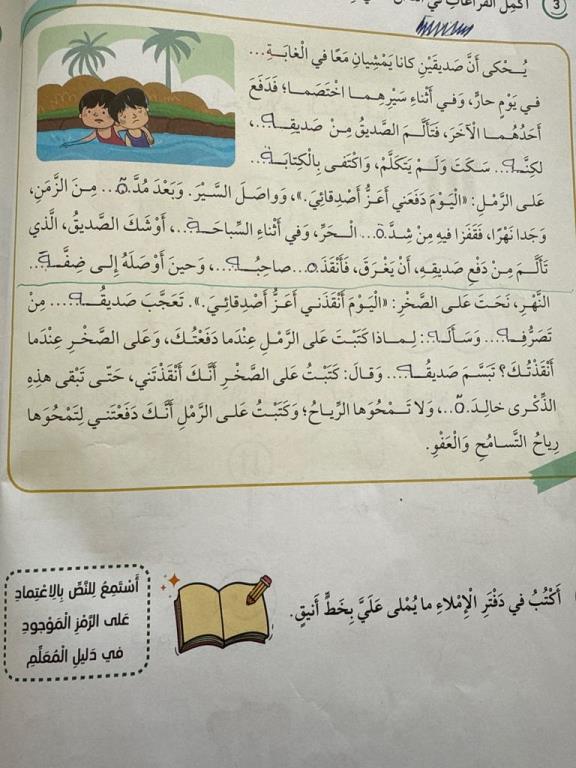 3 أَكْمِلُ الْفَراغاتِ في
يُـحْكى أَنَّ صَديقَيْنِ كانا يَمْشِيانِ مَعًا في الْغابَـةِ...
في يَوْمٍ حارٍّ، وَفي أَثْناءِ سَيْرِهِـمـا اخْتَصَمـا؛ فَدَفَعَ
أَحَدُهُمـا الْآخَرَ، فَتَأَلَّـمَ الصَّديقُ مِـنْ صَديقِـه...،
لكِنَّـه... سَكَتَ وَلَـمْ يَتَكَلَّمْ، وَاكْتَفى بِالْكِتابَـة...
عَلى الرَّمْلِ: «الْيَوْمَ دَفَعَني أَعَزُّ أَصْدِقائِيَ.»، وَواصَلَ السَّيْرَ. وَبَعْدَ مُدَّة... مِـنَ الزَّمَنِ،
وَجَدا نَهْرًا، فَقَفَزا فيهِ مِنْ شِـدَّة... الْـحَرِّ، وَفي أَثْناءِ السِّباحَـة...، أَوْشَكَ الصَّديقُ، الَّذي
تَأَلَّـمَ مِـنْ دَفْعِ صَديقِـهِ، أَنْ يَغْرَقَ، فَأَنْقَذَه... صاحِبُـه...، وَحينَ أَوْصَلَهُ إِلـى ضِفَّـة...
النَّهْرِ، نَحَتَ عَلـى الصَّخْرِ: «الْيَـوْمَ أَنْقَذَنـي أَعَـزُّ أَصْدِقائِيَ.». تَعَجَّبَ صَديقُـه... مِنْ
تَصَرُّفِـه... وَسَأَلَـه: لِـمـاذا كَتَبْتَ عَلى الرَّمْلِ عِنْدَما دَفَعْتُـكَ، وَعَلى الصَّخْـرِ عِنْدَما
أَنْقَذْتُكَ؟ تَبَسَّـمَ صَديقُـه... وَقالَ: كَتَبْتُ عَلى الصَّخْرِ أَنَّكَ أَنْقَذْتَني، حَتّـى تَبْقى هذِهِ
الذِّكْرى خالِدَة...، وَلا تَـمْحُوَها الرِّياحُ؛ وَكَتَبْتُ عَلـى الرَّمْلِ أَنَّـكَ دَفَعْتَنـي لِتَمْحُوَها
رِياحُ التَّسامُحِ وَالْعَفْوِ.
أَكْتُبُ في دَفْتَرِ الْإِمْلاءِ ما يُمْلى عَلَيَّ بِخَطٍّ أَنيقٍ.
أَسْتَمِعُ لِلنَّصِّ بِالِاعْتِمادِ
عَلى الرَّمْزِ الْمَوْجودِ
في دَليلِ الْمُعَلِّمِ